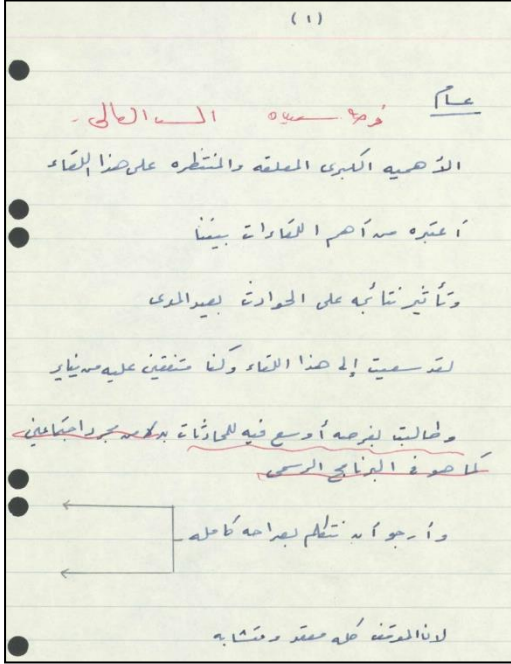 (١)
عام
فرصه سعيده السيد العالى
الأهميه الكبرى المعلقه والمنتظره على هذا اللقاء
أعتبره من أهم اللقاءات بيننا
وتأثير نتائجه على الحوادث بعيد المدى
لقد سعيت إلى هذا اللقاء وكنا متفقين عليه من يناير
وطالبت بفرصه أوسع فيه للمحادثات بدلا من مجرد اجتماعين
كما هو فى البرنامج الرسمى
وأرجو أن نتكلم بصراحه كامله
لان الموقف كله معقد ومتشابه